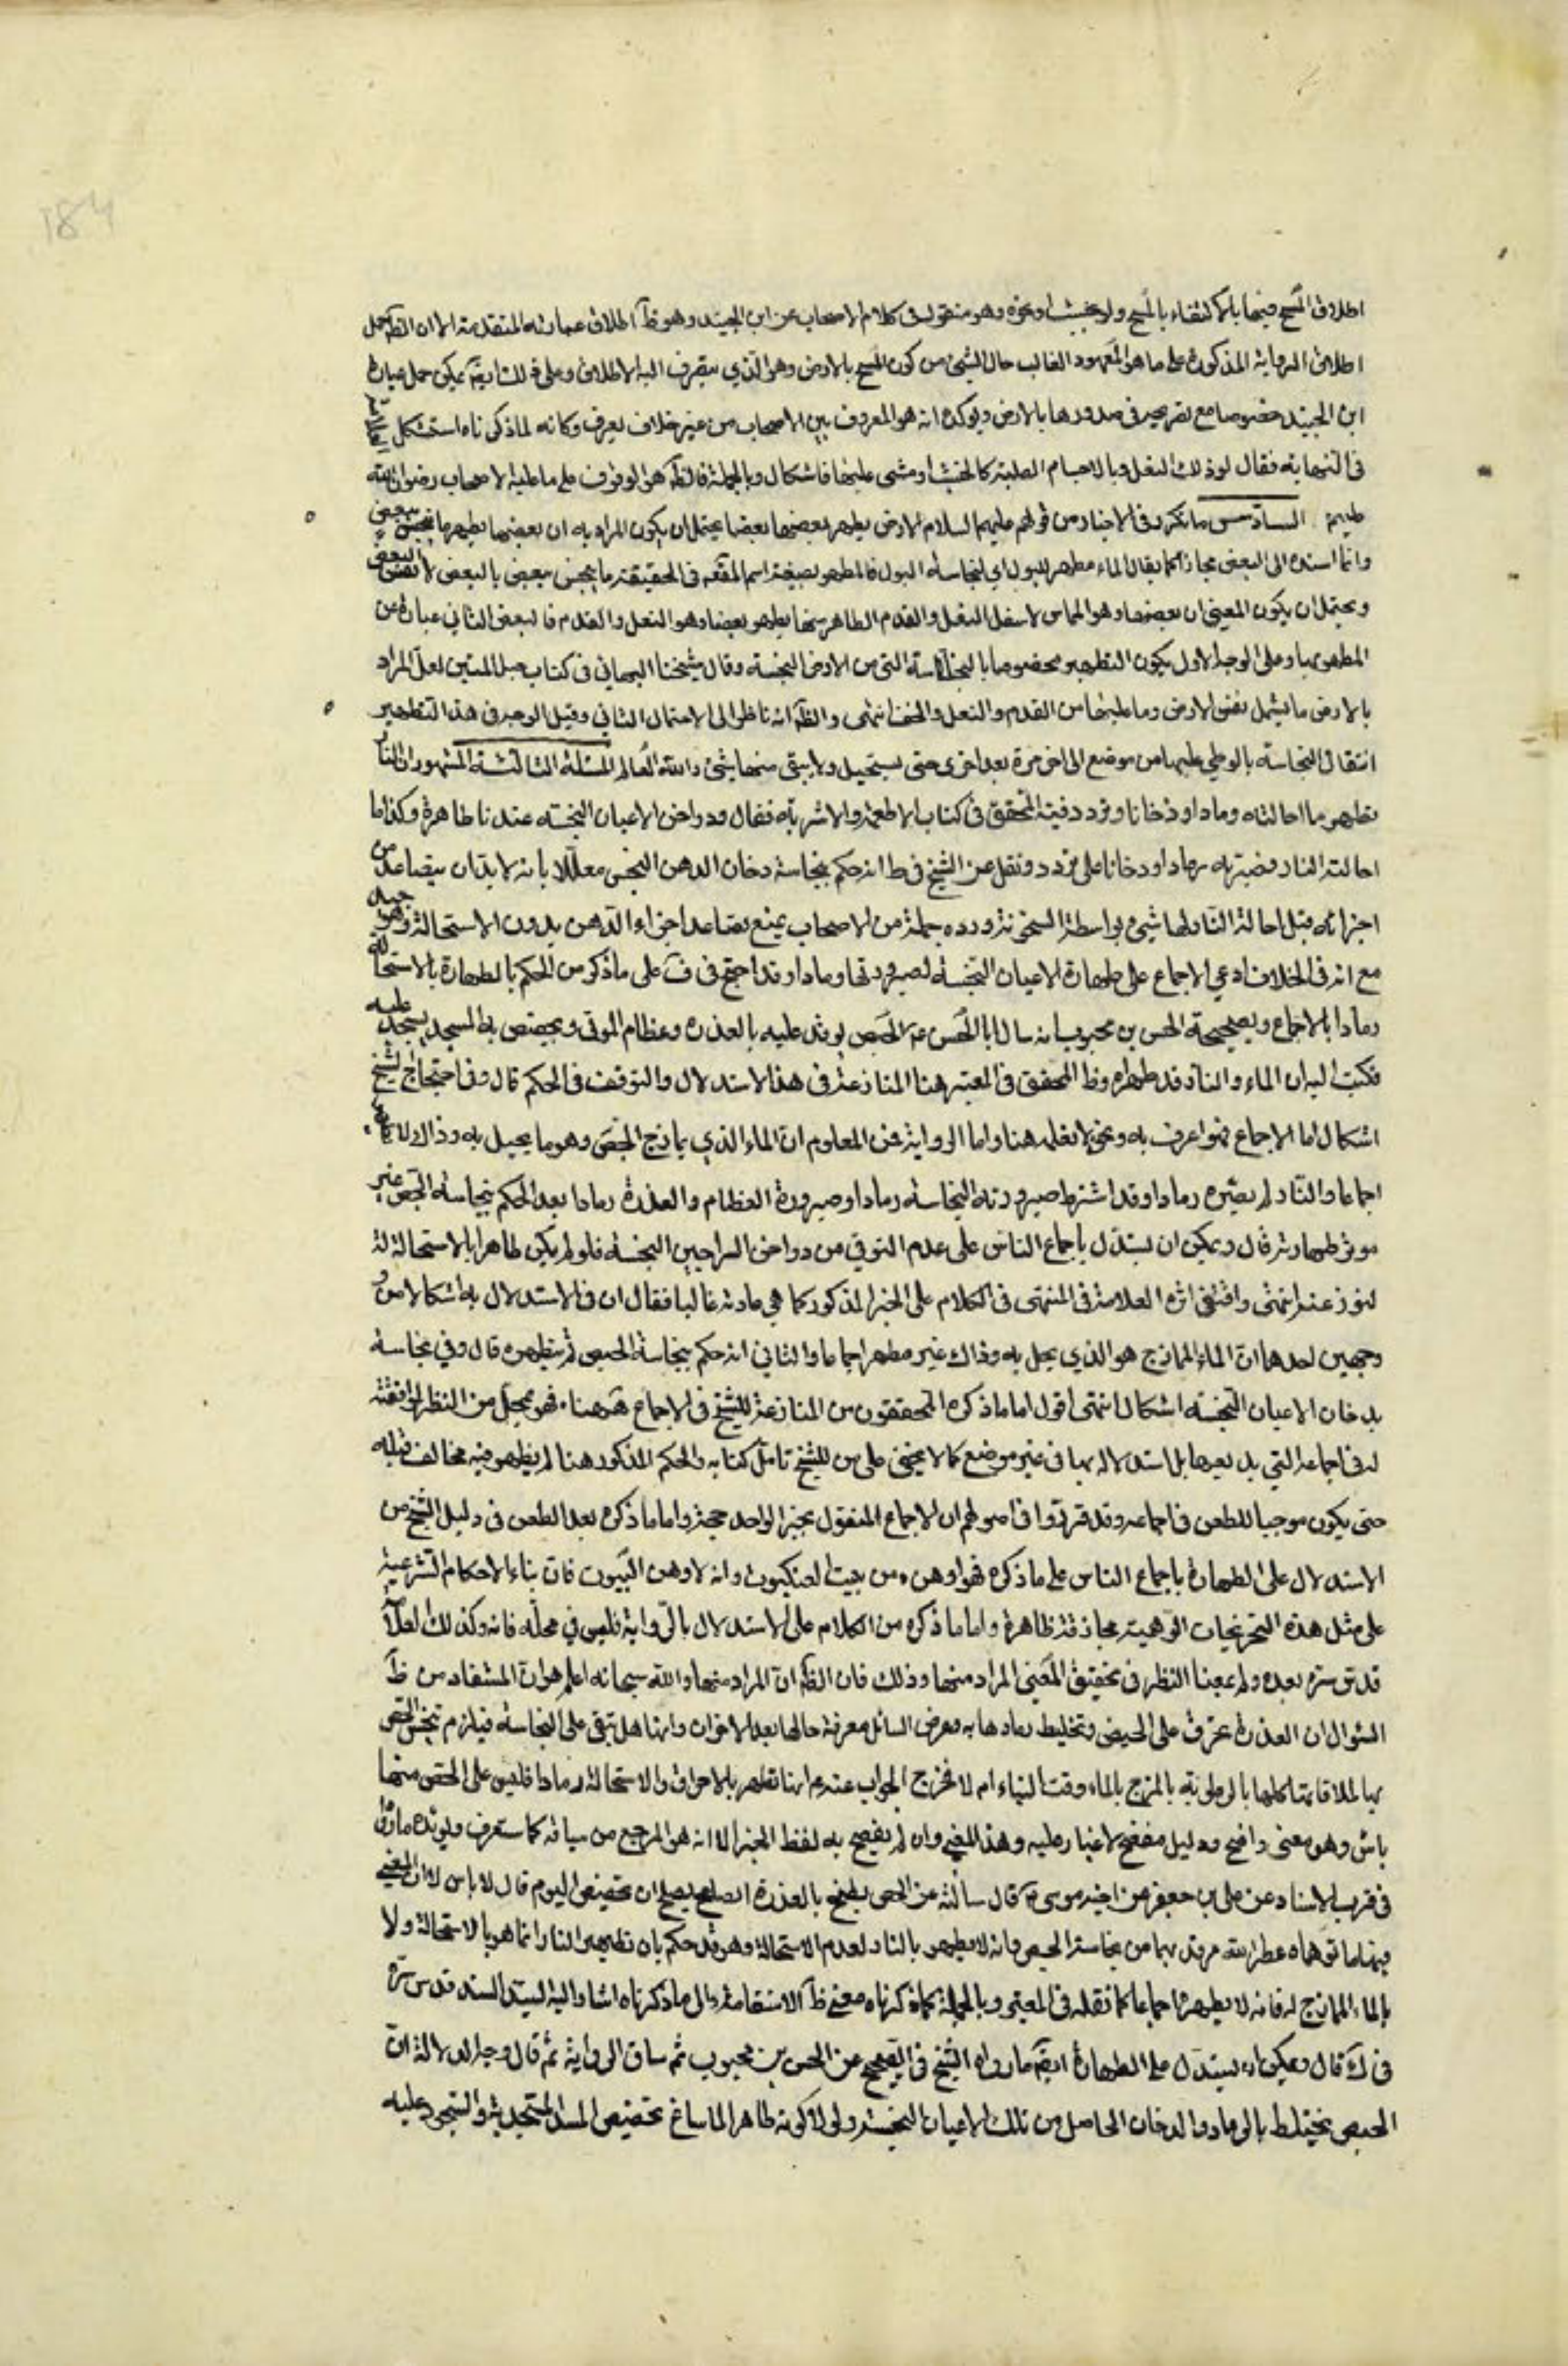 اطلاق المسح فيها بالاكتفاء بالمسح ولو بخشب او نحوه وهو منقول في كلام الاصحاب عن ابن الجنيد وهو ظ اطلاق عبارته المتقدمة الا ان الظ حمل
اطلاق الرواية المذكورة على ما هو المعهود الغالب حال الشيئ من كون المسح بالارض وهو الذي ينصرف اليه الاطلاق وعلى ذلك ايضا يمكن حمل عبارة
ابن الجنيد خصوصا مع تصريحه في صدورها بالارض ويؤكده انه هو المعروف بين الاصحاب من غير خلاف يعرف وكانه لما ذكرناه استشكل
في النهاية فقال لو ذلك النعل وبالاجسام الصلبة كالخشب او مشى عليها فاشكال وبالجملة فالظ هو الوقوف على ما عليه الاصحاب رضوان الله
عليهم السادس ما تكرر في الاخبار من قولهم عليهم السلام الارض يطهر بعضها بعضا يحتمل ان يكون المراد به ان بعضها يطهر ما ينجس ببعض
وانما اسنده الى البعض مجازا كما يقال الماء مطهر للبول اي لنجاسة البول فالمطهر بصيغة اسم المفعول في الحقيقة ما ينجس ببعض بالبعض لا نفس البعض
ويحتمل ان يكون المعنى ان بعضها وهو المماس لاسفل النعل والقدم الطاهر منها يطهر بعضا وهو النعل والقدم فالبعض الثاني عبارة عن
المطهر بها وعلى الوجه الاول يكون التطهير مخصوصا بالنجاسة التي من الارض النجسة وقال شيخنا البهائي في كتاب حبل المتين لعل المراد
بالارض ما يشمل نفس الارض وما عليها من القدم والنعل والخف انتهى والظ انه ناظر الى الاحتمال الثاني وقيل الوجه في هذا التطهير
انتقال النجاسة بالوطي عليها من موضع الى اخر مرة بعد اخرى حتى يستحيل ولا يبقى منها شيئ والله العالم المسئلة الثالثة المشهور ان النار
تطهر ما احالته رمادا او دخانا وتردد فيه المحقق في كتاب الاطعمة والاشربة فقال ودواخن الاعيان النجسة عندنا طاهرة وكذا ما
احالته النار فصيرته رمادا او دخانا على تردد ونقل عن الشيخ في ط انه حكم بنجاسة دخان الدهن النجس معللا بانه لابد ان يتصاعد من
اجزائه قبل احالة النار لها شيئ بواسطة السخونة ورده جملة من الاصحاب بمنع تصاعد اجزاء الدهن بدون الاستحالة وهو جيد
مع انه في الخلاف ادعى الاجماع على طهارة الاعيان النجسة لصيرورتها رمادا وقد احتج في ف على ما ذكر من الحكم بالطهارة بالاستحالة
رمادا بالاجماع وبصحيحة الحسن بن محبوب انه سال ابا الحسن ع عن الجص يوقد عليه بالعذرة وعظام الموتى ويجصص به المسجد يسجد عليه
فكتب اليه ان الماء والنار قد طهراه وظ المحقق في المعتبر هنا المنازعة في هذا الاستدلال والتوقف في الحكم قال وفي احتجاج الشيخ
اشكال اما الاجماع فهو اعرف به ونحن لا نعلمه هنا واما الرواية فمن المعلوم ان الماء الذي يمازج الجص وهو ما يحيل به وذاك لا يطهر
اجماعا والنار لم يصيره رمادا وقد اشترط صيرورة النجاسة رمادا وصيرورة العظام والعذرة رمادا بعد الحكم بنجاسة الجص غير
موثر طهارته قال ويمكن ان يستدل باجماع الناس على عدم التوقي من دواخن السراجين النجسة فلو لم يكن طاهرا بالاستحالة
لتورعوا عنه انتهى واقتفى اثره العلامة في المنتهى في الكلام على الخبر المذكور كما هي عادته غالبا فقال ان في الاستدلال به اشكالا من
وجهين احدهما ان الماء الممازج هو الذي يحل به وذاك غير مطهر اجماعا والثاني انه حكم بنجاسة الجص ثم بتطهيره قال وفي نجاسة
دخان الاعيان النجسة اشكال انتهى اقول اما ما ذكره المحققون من المنازعة للشيخ في الاجماع هيهنا فهو بمحل من النظر لموافقته
له في اجماعه التي يدعيها بل استدلاله بها في غير موضع كما لا يخفى على من للشيخ تامل كتابه والحكم المذكور هنا لم يظهر فيه مخالف قبله
حتى يكون موجبا للطعن في اجماعه وقد قرروا في اصولهم ان الاجماع المنقول بخبر الواحد حجة واما ما ذكره بعد الطعن في دليل الشيخ من
الاستدلال على الطهارة باجماع الناس على ما ذكره فهو اوهن من بيت العنكبوت وانه لاوهن البيوت فان بناء الاحكام الشرعية
على مثل هذه التخريجات الوهمية مجازفة ظاهرة واما ما ذكره من الكلام على الاستدلال بالرواية فليس في محله فانه وكذلك العلامة
قدس سره بعده ولم يمعنا النظر في تحقيق المعنى المراد منها وذلك فان الظ ان المراد منها والله سبحانه اعلم هو ان المستفاد من ظ
السئوال ان العذرة تحرق على الجص وتخليط رمادها به وغرض السائل معرفة حالها بعد الاحراق وانها هل تبقى على النجاسة فيلزم تنجس الجص
بها لملاقاتها كلها بالرطوبة بالمزج بالماء وقت البناء ام لا فخرج الجواب عنه ع انها تطهر بالاحراق والاستحالة رمادا فليس على الجص منها
باس وهو معنى واضح ودليل مفصح لا غبار عليه وهذا المعنى وان لم يفصح به لفظ الخبر الا انه هو المرجع من سياقه كما ستعرف ويؤيده ما رواه
في قرب الاسناد عن علي بن جعفر عن اخيه موسى ع قال سالته عن الجص يطبخ بالعذرة ايصلح ان تجصص اليوم قال لا باس
فيها ما توهماه عطر الله مرقدهما من نجاسة الجص وانه لا يطهر بالنار لعدم الاستحالة وهو قد حكم بان تطهير النار انما هو بالاستحالة ولا
بالماء الممازج له فانه لا يطهره اجماعا كما نقله في المعتبر وبالجملة كما ذكرناه معنى ظ الاستقامة والى ما ذكرناه اشار اليه السيد السند قدس سره
في ك قال ويمكن ان يستدل على الطهارة ايضا ما رواه الشيخ في الصحيح عن الحسن بن محبوب ثم ساق الرواية ثم قال وجه الدلالة ان
الجص يختلط بالرماد والدخان الحاصل من تلك الاعيان النجسة ولولا كونه طاهرا لما ساغ تجصيص المسجد به والسجود عليه